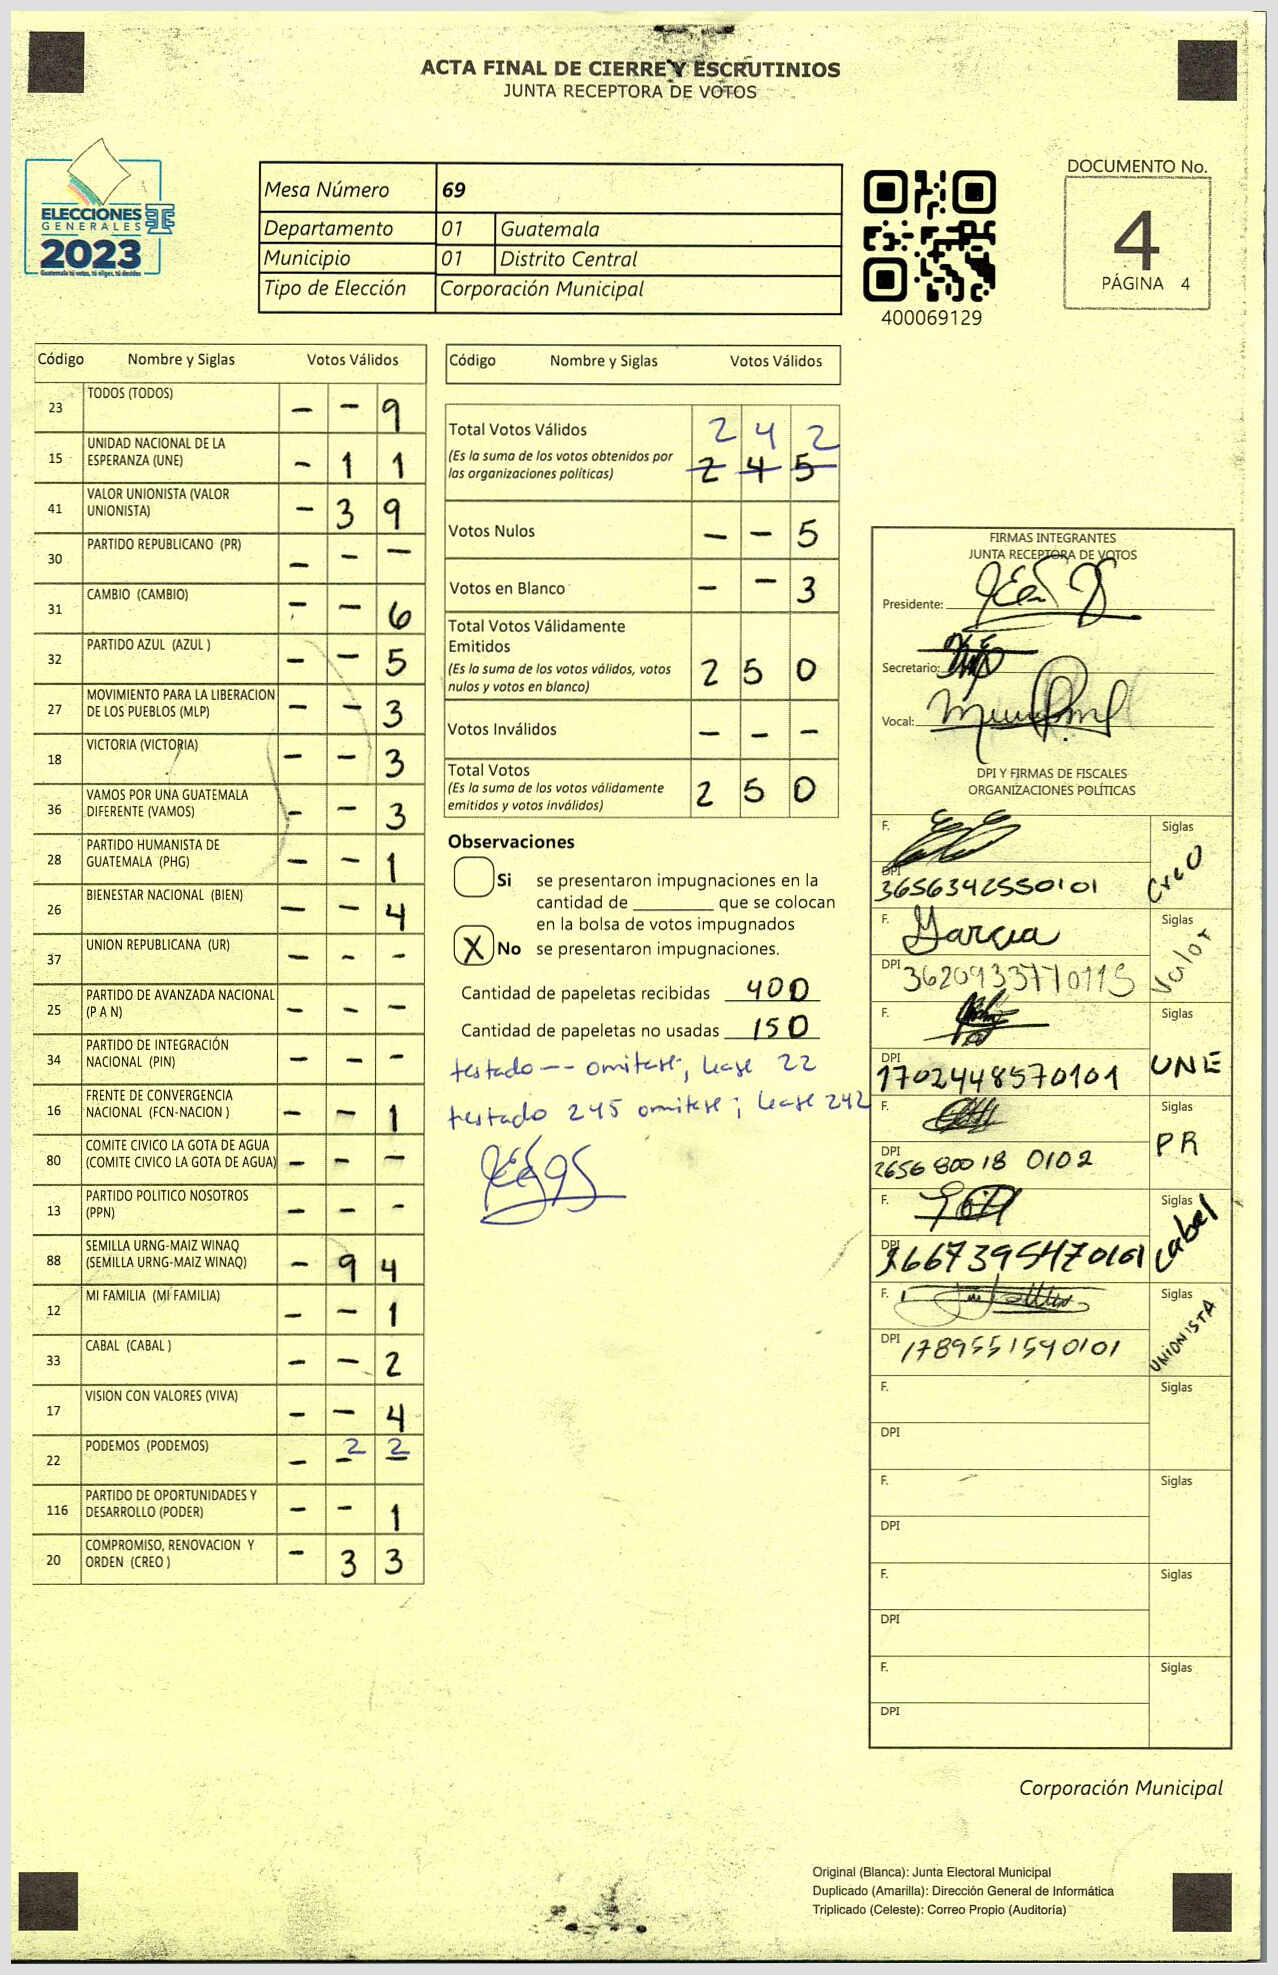 ACTA FINAL DE CIERRE Y ESCRUTINIOS
JUNTA RECEPTORA DE VOTOS
ELECCIONES
GENERALES
2023
Guatemala tú votas, tú eliges, tú decides
Mesa Número 69
Departamento 01 Guatemala
Municipio 01 Distrito Central
Tipo de Elección Corporación Municipal
400069129
DOCUMENTO No.
4
PÁGINA 4
Código Nombre y Siglas Votos Válidos
23 TODOS (TODOS) - - 9
15 UNIDAD NACIONAL DE LA ESPERANZA (UNE) - 1 1
41 VALOR UNIONISTA (VALOR UNIONISTA) - 3 9
30 PARTIDO REPUBLICANO (PR) - - -
31 CAMBIO (CAMBIO) - - 6
32 PARTIDO AZUL (AZUL ) - - 5
27 MOVIMIENTO PARA LA LIBERACION DE LOS PUEBLOS (MLP) - - 3
18 VICTORIA (VICTORIA) - - 3
36 VAMOS POR UNA GUATEMALA DIFERENTE (VAMOS) - - 3
28 PARTIDO HUMANISTA DE GUATEMALA (PHG) - - 1
26 BIENESTAR NACIONAL (BIEN) - - 4
37 UNION REPUBLICANA (UR) - - -
25 PARTIDO DE AVANZADA NACIONAL (P A N) - - -
34 PARTIDO DE INTEGRACIÓN NACIONAL (PIN) - - -
16 FRENTE DE CONVERGENCIA NACIONAL (FCN-NACION ) - - 1
80 COMITE CIVICO LA GOTA DE AGUA (COMITE CIVICO LA GOTA DE AGUA) - - -
13 PARTIDO POLITICO NOSOTROS (PPN) - - -
88 SEMILLA URNG-MAIZ WINAQ (SEMILLA URNG-MAIZ WINAQ) - 9 4
12 MI FAMILIA (MI FAMILIA) - - 1
33 CABAL (CABAL ) - - 2
17 VISION CON VALORES (VIVA) - - 4
22 PODEMOS (PODEMOS) - 2 2
116 PARTIDO DE OPORTUNIDADES Y DESARROLLO (PODER) - - 1
20 COMPROMISO, RENOVACION Y ORDEN (CREO ) - 3 3
Código Nombre y Siglas Votos Válidos
Total Votos Válidos 2 4 2
(Es la suma de los votos obtenidos por las organizaciones políticas) 2 4 5
Votos Nulos - - 5
Votos en Blanco - - 3
Total Votos Válidamente Emitidos
(Es la suma de los votos válidos, votos nulos y votos en blanco) 2 5 0
Votos Inválidos - - -
Total Votos
(Es la suma de los votos válidamente emitidos y votos inválidos) 2 5 0
Observaciones
Si se presentaron impugnaciones en la
cantidad de ________ que se colocan
en la bolsa de votos impugnados
X No se presentaron impugnaciones.
Cantidad de papeletas recibidas 400
Cantidad de papeletas no usadas 150
testado -- omitase; lease 22
testado 245 omitase; lease 242
FIRMAS INTEGRANTES
JUNTA RECEPTORA DE VOTOS
Presidente:
Secretario:
Vocal:
DPI Y FIRMAS DE FISCALES
ORGANIZACIONES POLÍTICAS
F. Siglas
DPI 3656342550101 Creo
F. Garcia Siglas
DPI 3620933770115 Valor
F. Siglas
DPI 1702448570101 UNE
F. Siglas
DPI 2656 80018 0102 PR
F. Siglas
DPI 2667395470101
F. Siglas
DPI 1789551590101 UNIONISTA
F. Siglas
DPI
F. Siglas
DPI
F. Siglas
DPI
F. Siglas
DPI
Corporación Municipal
Original (Blanca): Junta Electoral Municipal
Duplicado (Amarilla): Dirección General de Informática
Triplicado (Celeste): Correo Propio (Auditoría)